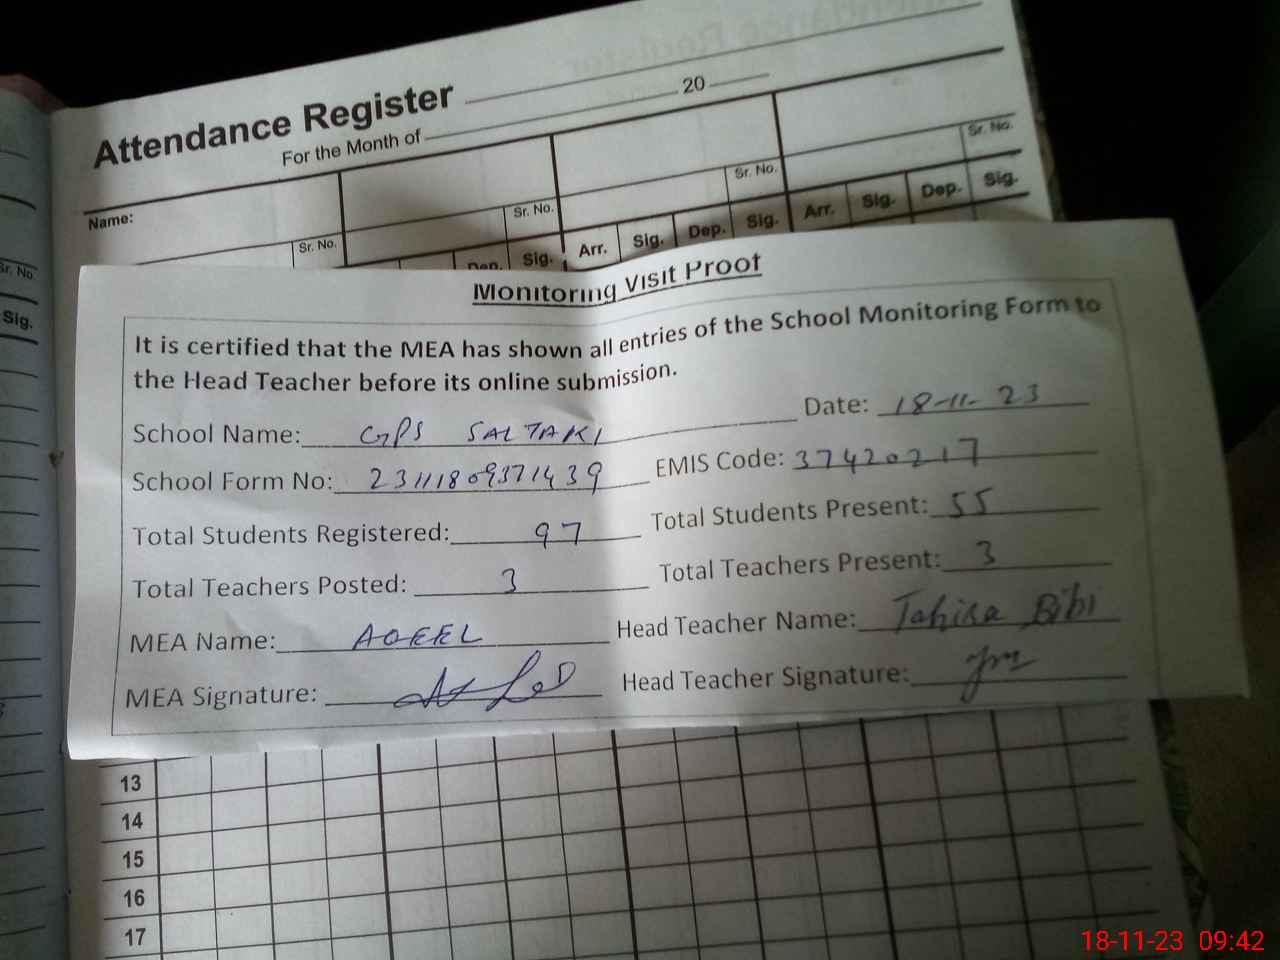 Attendance Register
20
For the Month of
Name:
Sr. No.
Sr. No.
Sr. No.
Sr. No.
Sr. No.
Sig.
Dep. Sig. Arr. Sig. Dep. Sig. Arr. Sig. Dep. Sig.
Monitoring Visit Proof
It is certified that the MEA has shown all entries of the School Monitoring Form to
the Head Teacher before its online submission.
Date: 18-11-23
School Name: GPS SALTAKI
School Form No: 23111809371439 EMIS Code: 37420217
Total Students Registered: 97 Total Students Present: 55
Total Teachers Posted: 3 Total Teachers Present: 3
MEA Name: AQEEL Head Teacher Name: Tahira Bibi
MEA Signature: Head Teacher Signature:
13
14
15
16
17
18-11-23 09:42